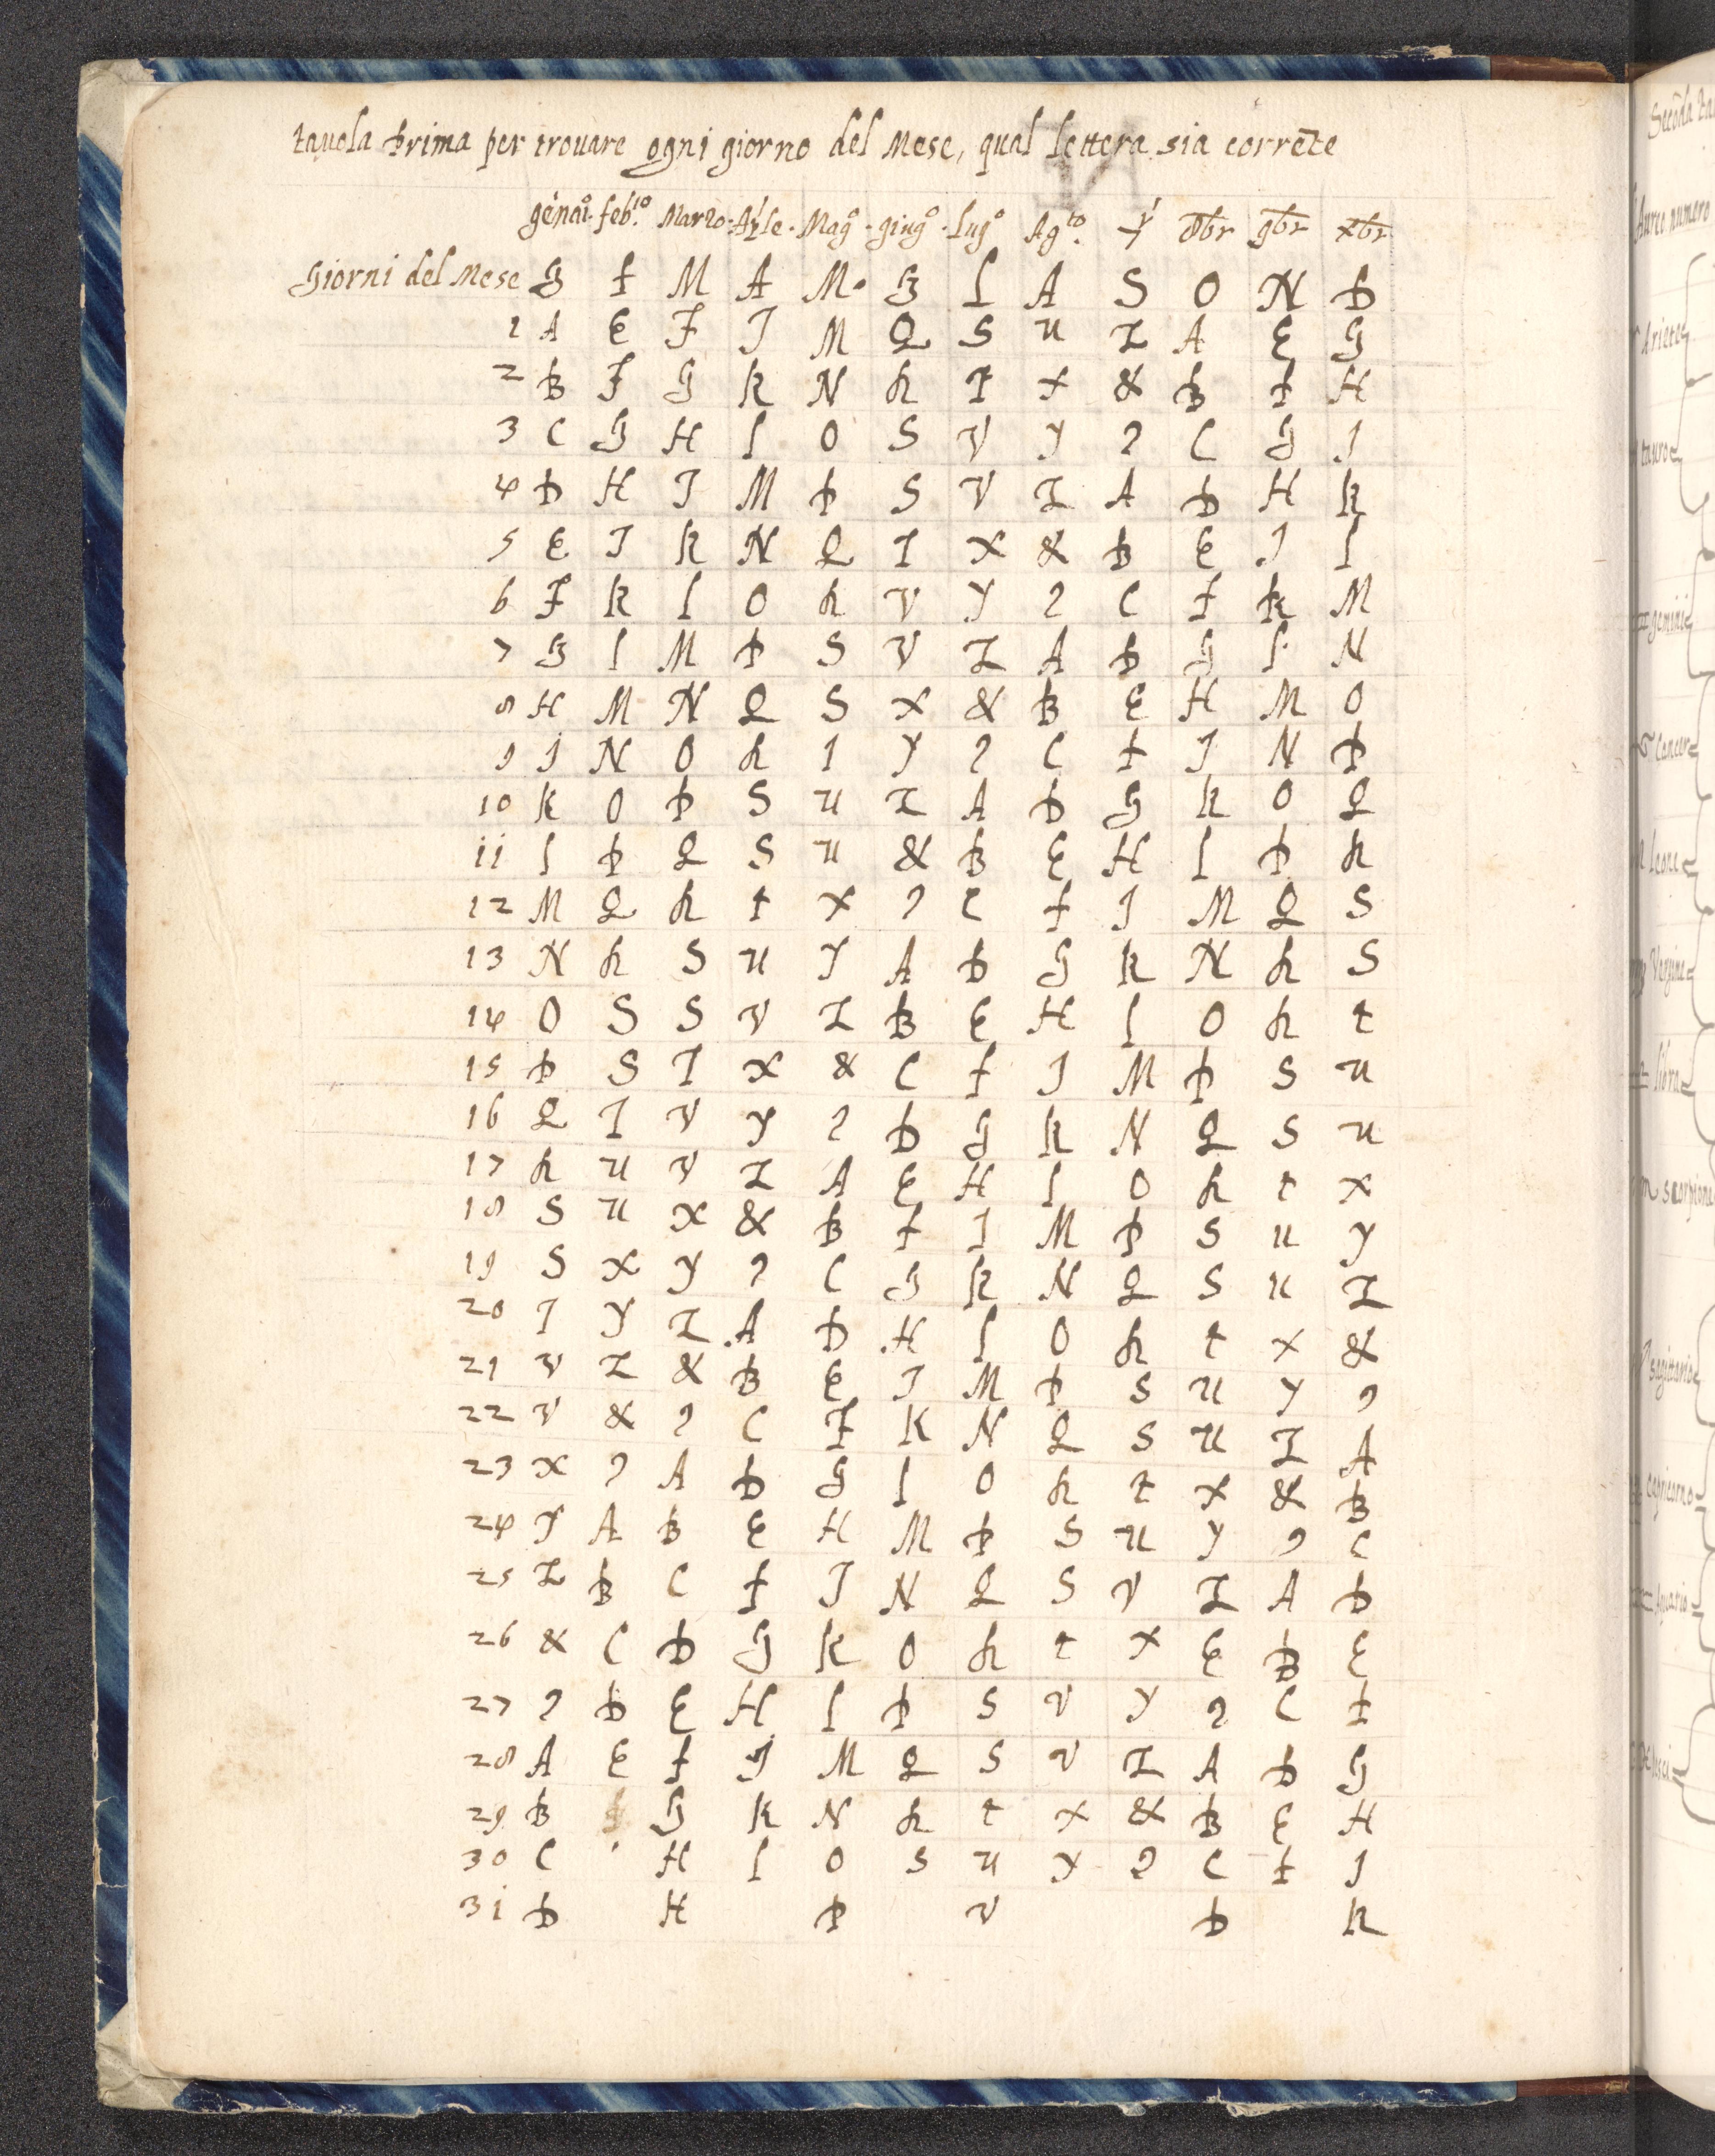 tauola prima per trouare ogni giorno del Mese, qual lettera sia corrēte
genaº. feb.ro Marzo. Ap̄le. Magº. giugº. lugº Ag.to 7 8br 9br xbr
Giorni del Mese G F M A M. G L A S O N D
1 A E F I M Q S u Z A E G
2 B F G K N R T X & B F H
3 C G H L O S V Y 9 C G I
4 D H I M P S V Z A D H K
5 E I K N Q T X & B E I L
6 F K L O R V Y 9 C F K M
7 G L M P S V Z A D G L N
8 H M N Q S X & B E H M O
9 I N O R T Y 9 C F I N P
10 K O P S u Z A D G K O Q
11 L P Q S u & B E H L P R
12 M Q R t X 9 C F I M Q S
13 N R S u Y A D G K N R S
14 O S S V Z B E H L O R t
15 P S T X & C F I M P S u
16 Q T V Y 9 D G K N Q S u
17 R u V Z A E H L O R t x
18 S u X & B F I M P S u y
19 S X Y 9 C G K N Q S u Z
20 T Y Z A D H L O R t x &
21 V Z & B E I M P S u y 9
22 V & 9 C F K N Q S u Z A
23 X 9 A D G L O R t x & B
24 Y A B E H M P S u y 9 C
25 Z B C F I N Q S V Z A D
26 & C D G K O R t x E B E
27 9 D E H L P S V Y 9 C F
28 A E F I M Q S V Z A D G
29 B G K N R t x & B E H
30 C H L O S u Y 9 C F I
31 D H P V D K
Aureo numero
Ariete
tauro
gemini
Cancer
leone
Vergine
libra
scorpione
sagittario
Capricorno
Aquario